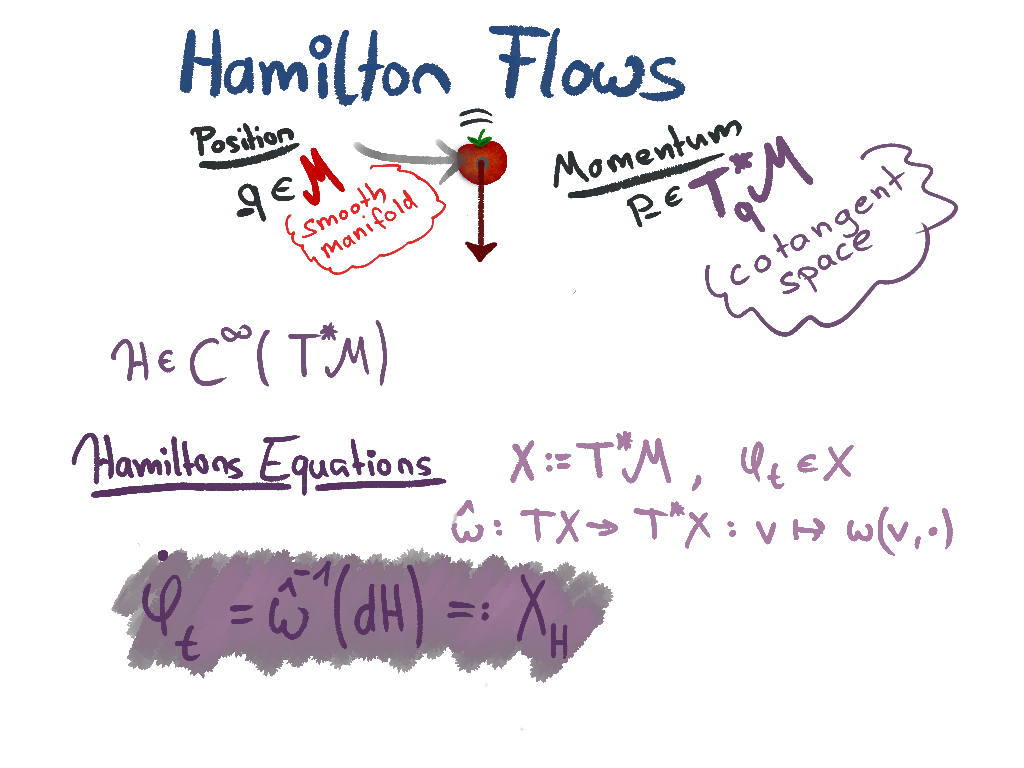 Hamilton Flows
Position
q ∈ M
smooth
manifold
Momentum
p ∈ T*qM
cotangent
space
H ∈ C^∞(T*M)
Hamiltons Equations
X := T*M, φ_t ∈ X
ω̂ : TX → T*X : v ↦ ω(v, ·)
φ̇_t = ω̂^-1(dH) =: X_H